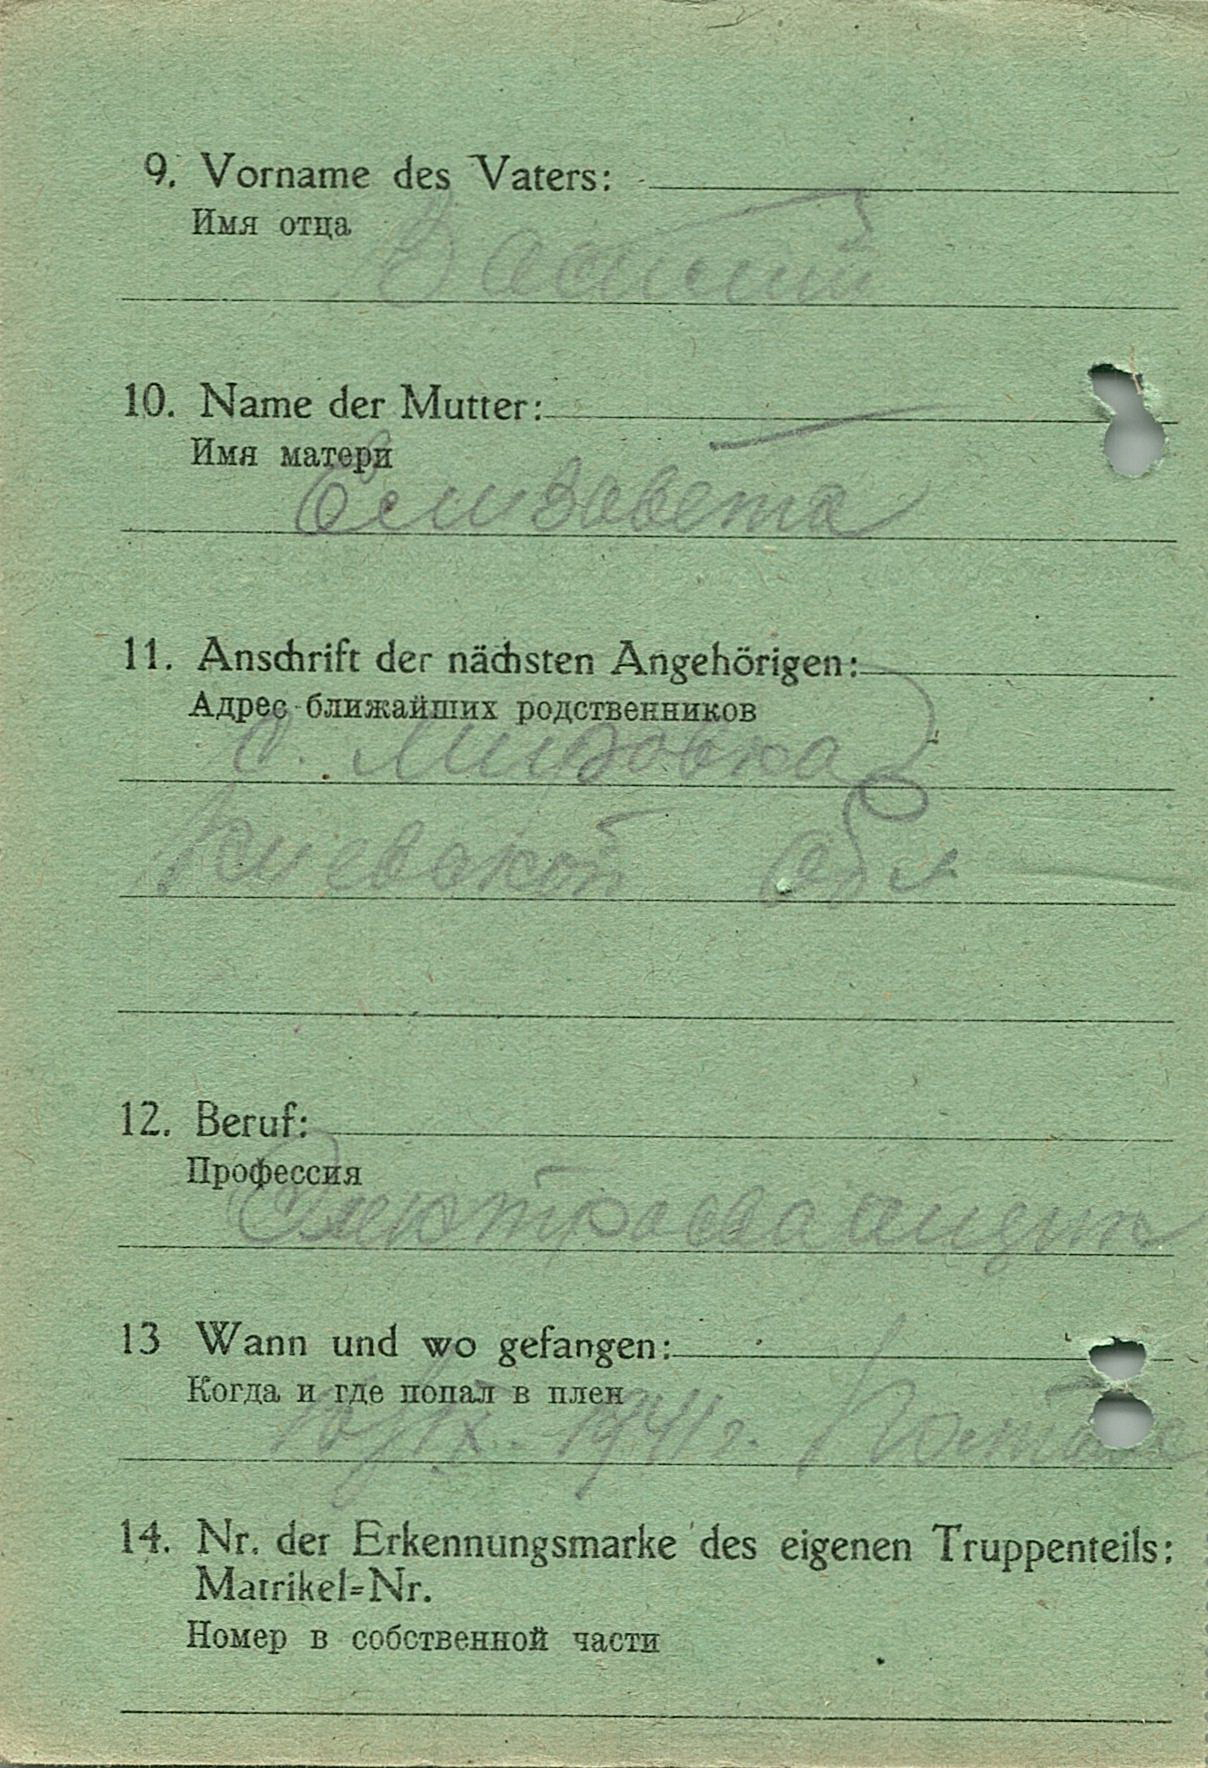 9. Vorname des Vaters:
Имя отца
Василий
10. Name der Mutter:
Имя матери
Елизавета
11. Anschrift der nächsten Angehörigen:
Адрес ближайших родственников
с. Мировка
Киевской обл
12. Beruf:
Профессия
13 Wann und wo gefangen:
Когда и где попал в плен
1941 г.
14. Nr. der Erkennungsmarke des eigenen Truppenteils:
Matrikel=Nr.
Номер в собственной части